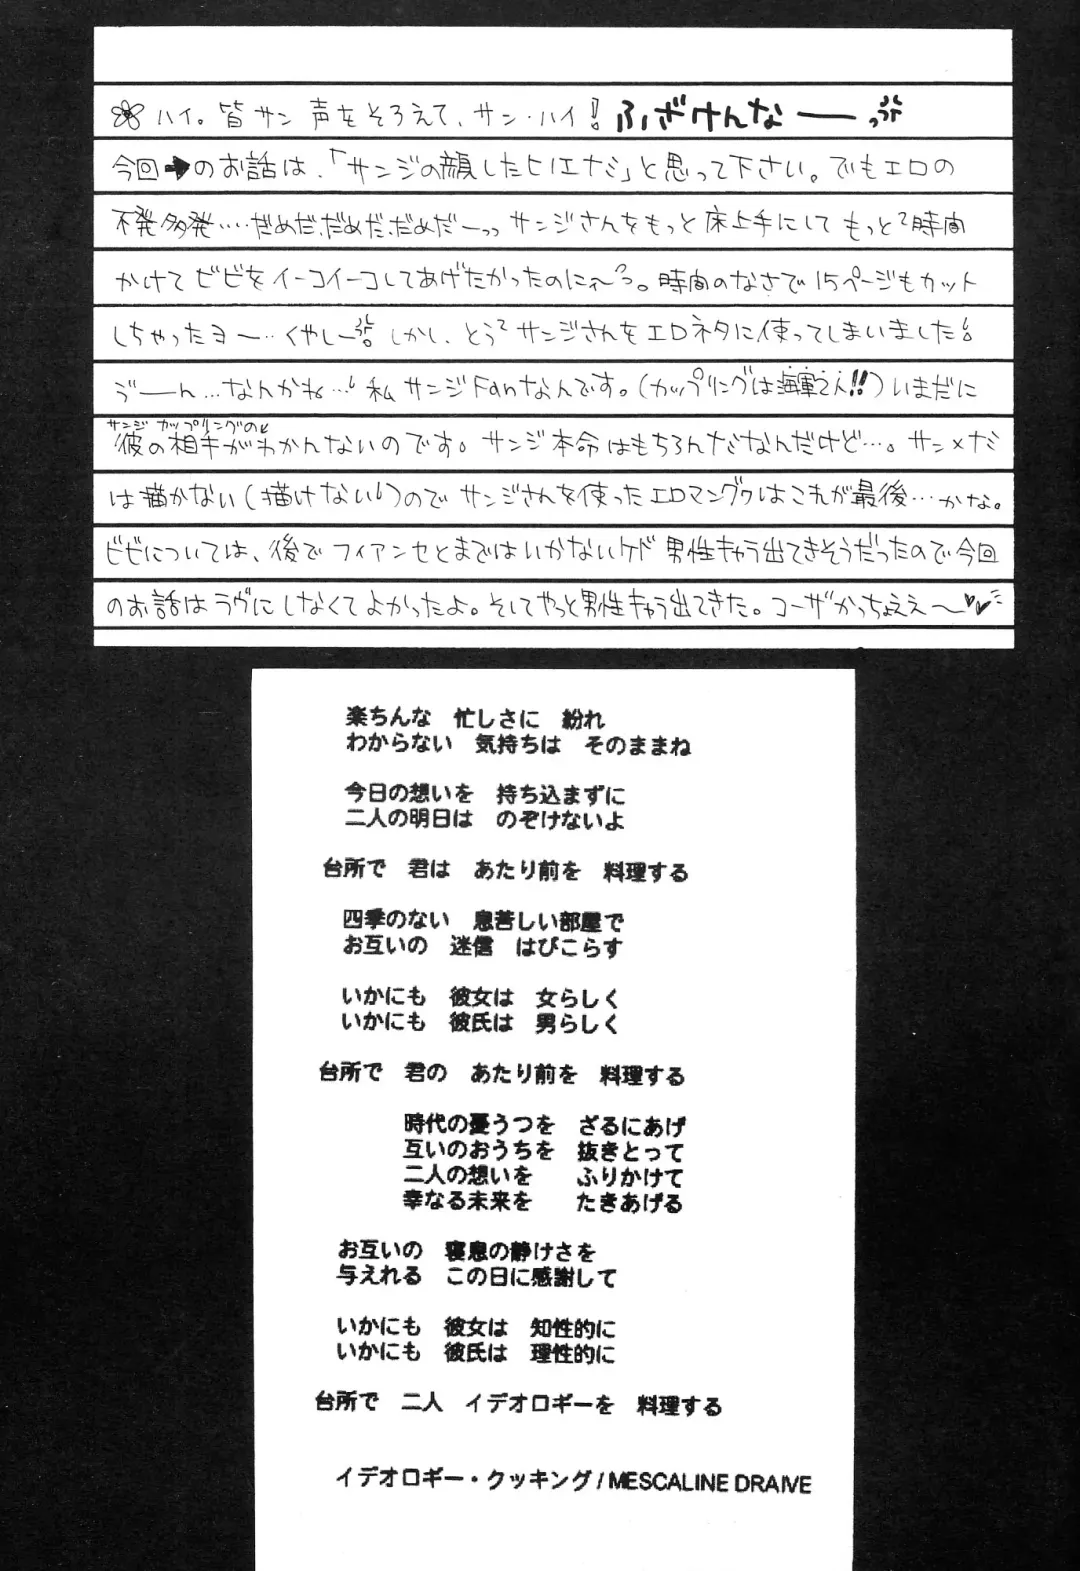 ハイ。皆サン 声をそろえて、サン・ハイ! ふざけんなー
今回➡のお話は、「サンジの顔したヒノエナミ」と思って下さい。でもエロの
不発多発‥‥だめだ、だめだ、だめだーっっ サンジさんをもっと床上手にして もっと2時間
かけて ビビを イーコイーコしてあげたかったのにィ〜っ。時間のなさで 15ページもカット
しちゃったヨー‥くやしー しかし、とうとう サンジさんを エロネタに使ってしまいました
う゛ーーん…なんかね… 私 サンジFanなんです。(カップリングは海軍さん!!)いまだに
サンジ カップリングの
彼の相手がわかんないのです。サンジ本命はもちろんナミなんだけど…。サン×ナミ
は描かない(描けない)ので サンジさんを使った エロマンガはこれが最後…かな。
ビビについては、後で フィアンセとまではいかないケド 男性キャラ出てきそうだったので今回
のお話はラヴにしなくてよかったよ。そしてやっと男性キャラ出てきた。コーザかっちょええ〜
楽ちんな 忙しさに 紛れ
わからない 気持ちは そのままね
今日の想いを 持ち込まずに
二人の明日は のぞけないよ
台所で 君は あたり前を 料理する
四季のない 息苦しい部屋で
お互いの 迷信 はびこらす
いかにも 彼女は 女らしく
いかにも 彼氏は 男らしく
台所で 君の あたり前を 料理する
時代の憂うつを ざるにあげ
互いのおうちを 抜きとって
二人の想いを ふりかけて
幸なる未来を たきあげる
お互いの 寝息の静けさを
与えれる この日に感謝して
いかにも 彼女は 知性的に
いかにも 彼氏は 理性的に
台所で 二人 イデオロギーを 料理する
イデオロギー・クッキング/MESCALINE DRAIVE